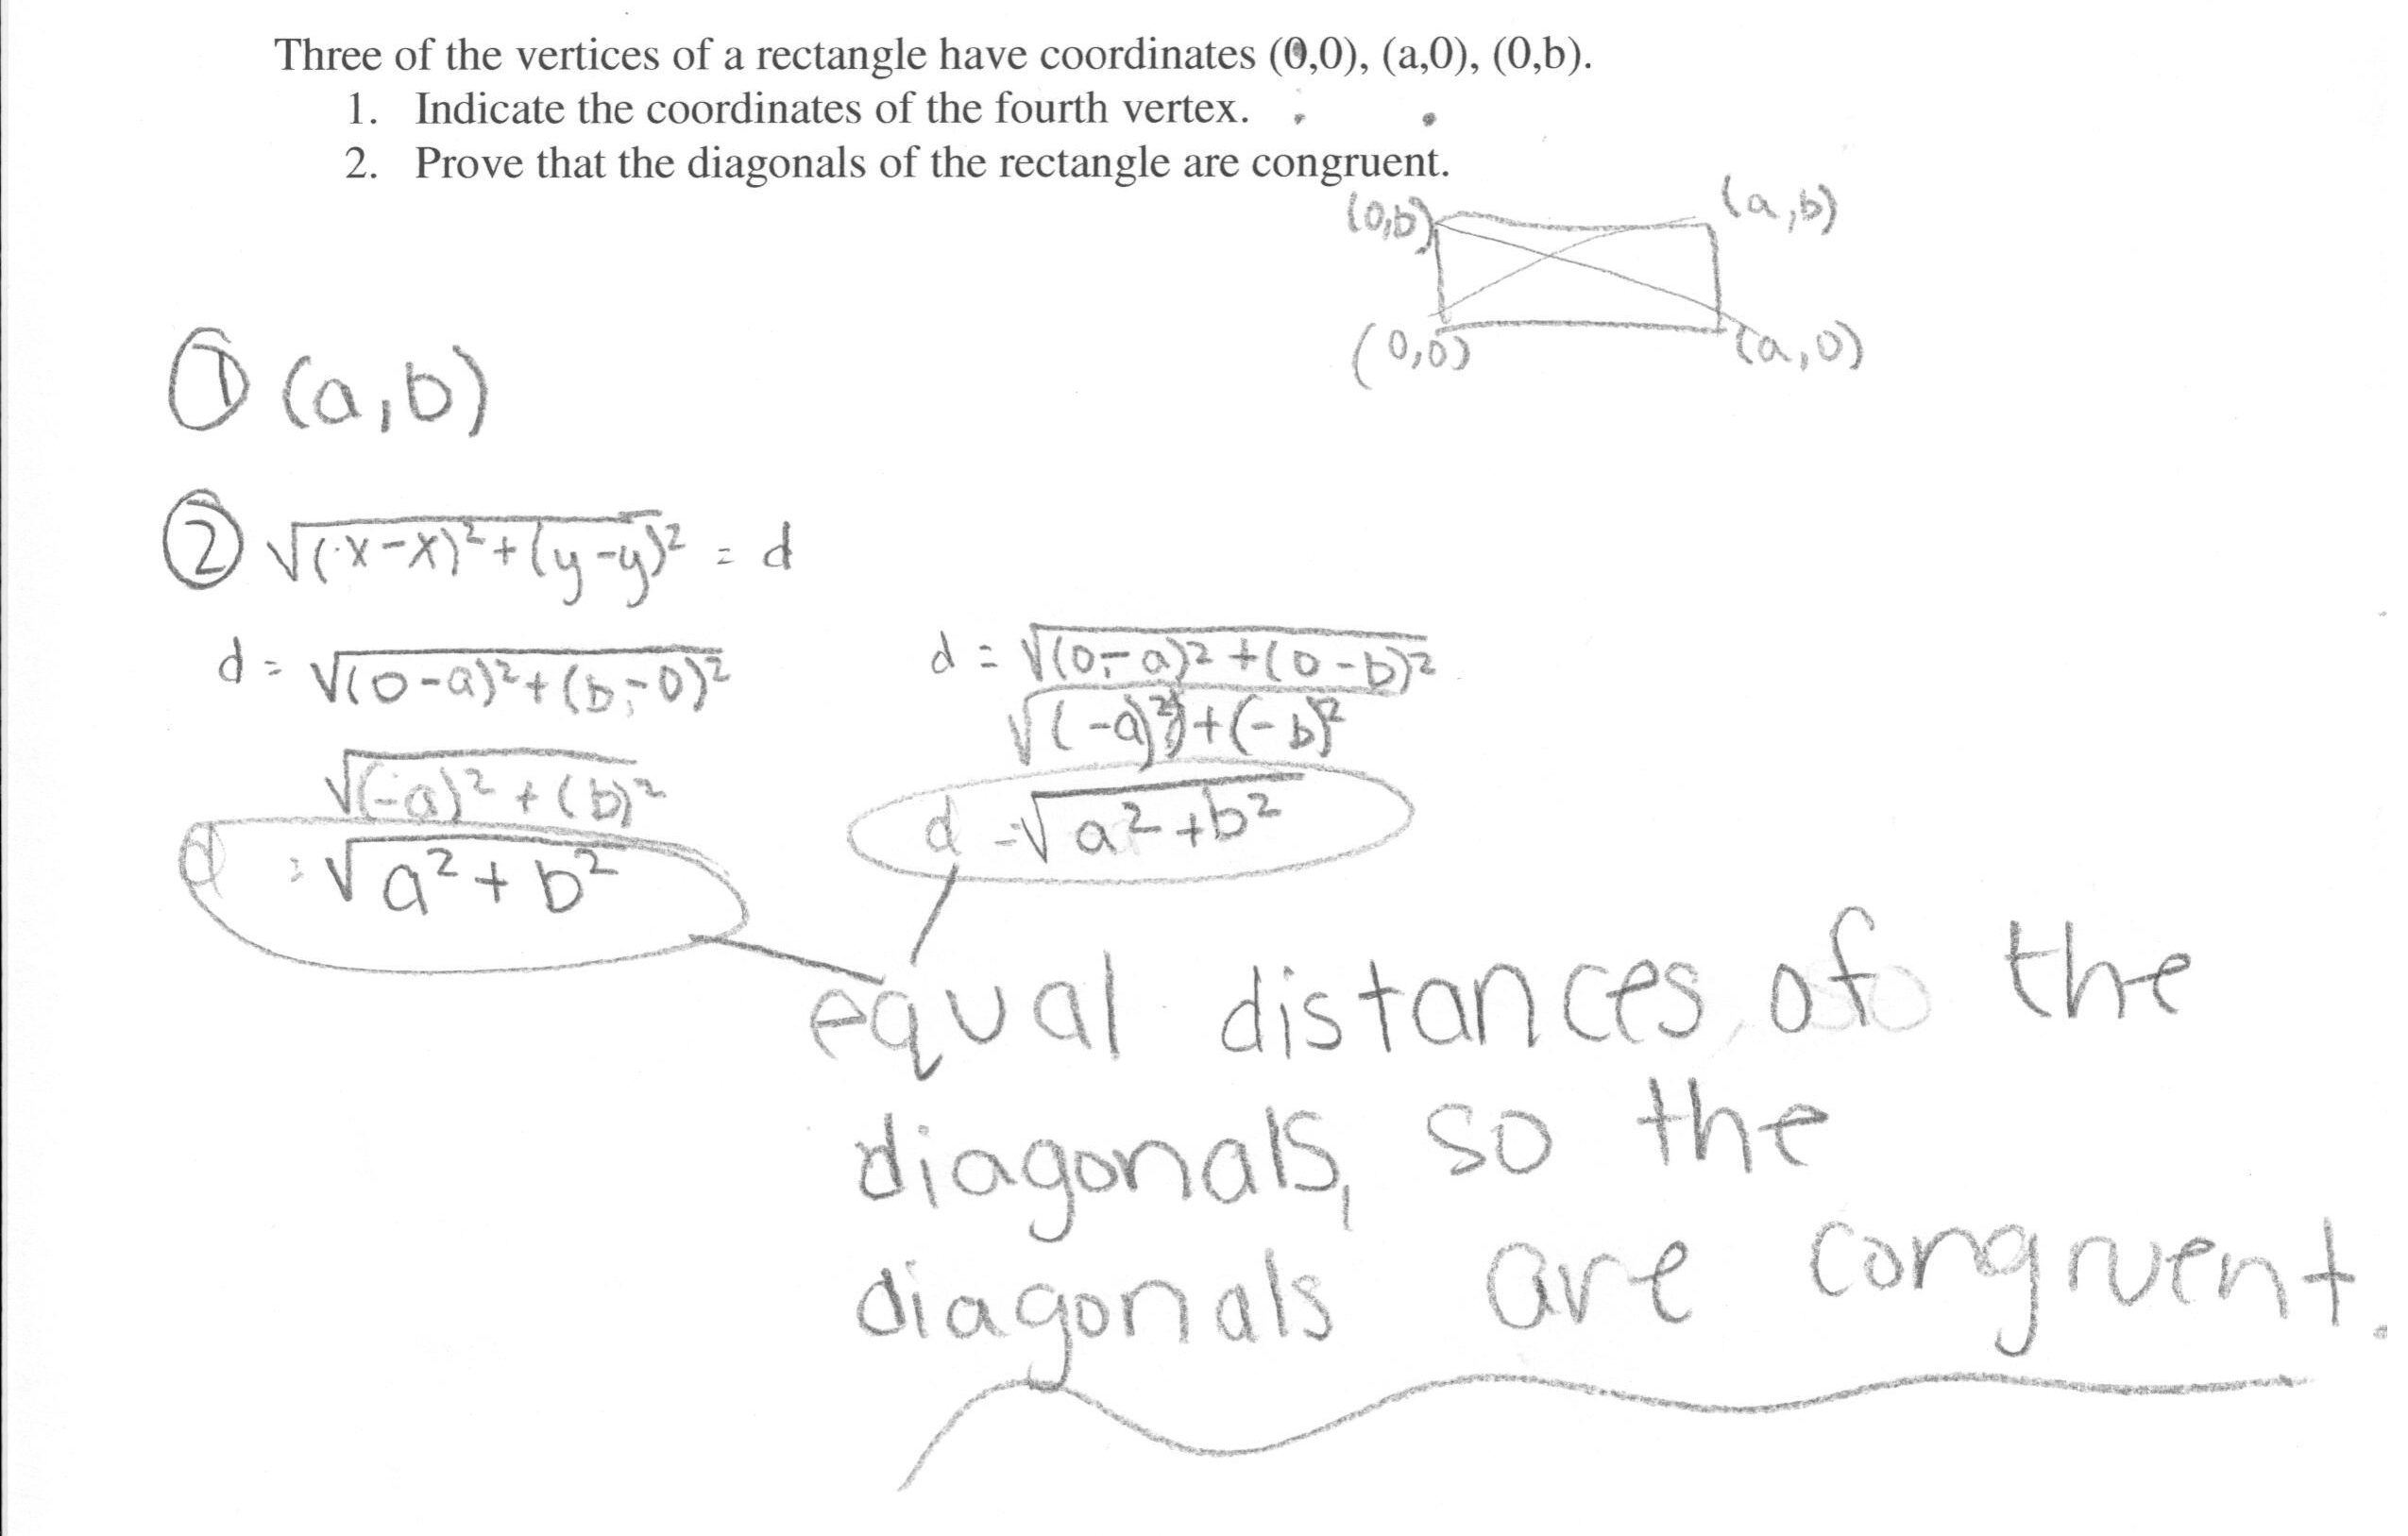 Three of the vertices of a rectangle have coordinates (0,0), (a,0), (0,b).
1. Indicate the coordinates of the fourth vertex.
2. Prove that the diagonals of the rectangle are congruent.
(0,b) (a,b)
(0,0) (a,0)
① (a,b)
② √(x-x)²+(y-y)² = d
d = √(0-a)²+(b-0)²
√(-a)²+(b)²
d = √a²+b²
d = √(0-a)²+(0-b)²
√(-a)²+(-b)²
d = √a²+b²
equal distances of the
diagonals, so the
diagonals are congruent.